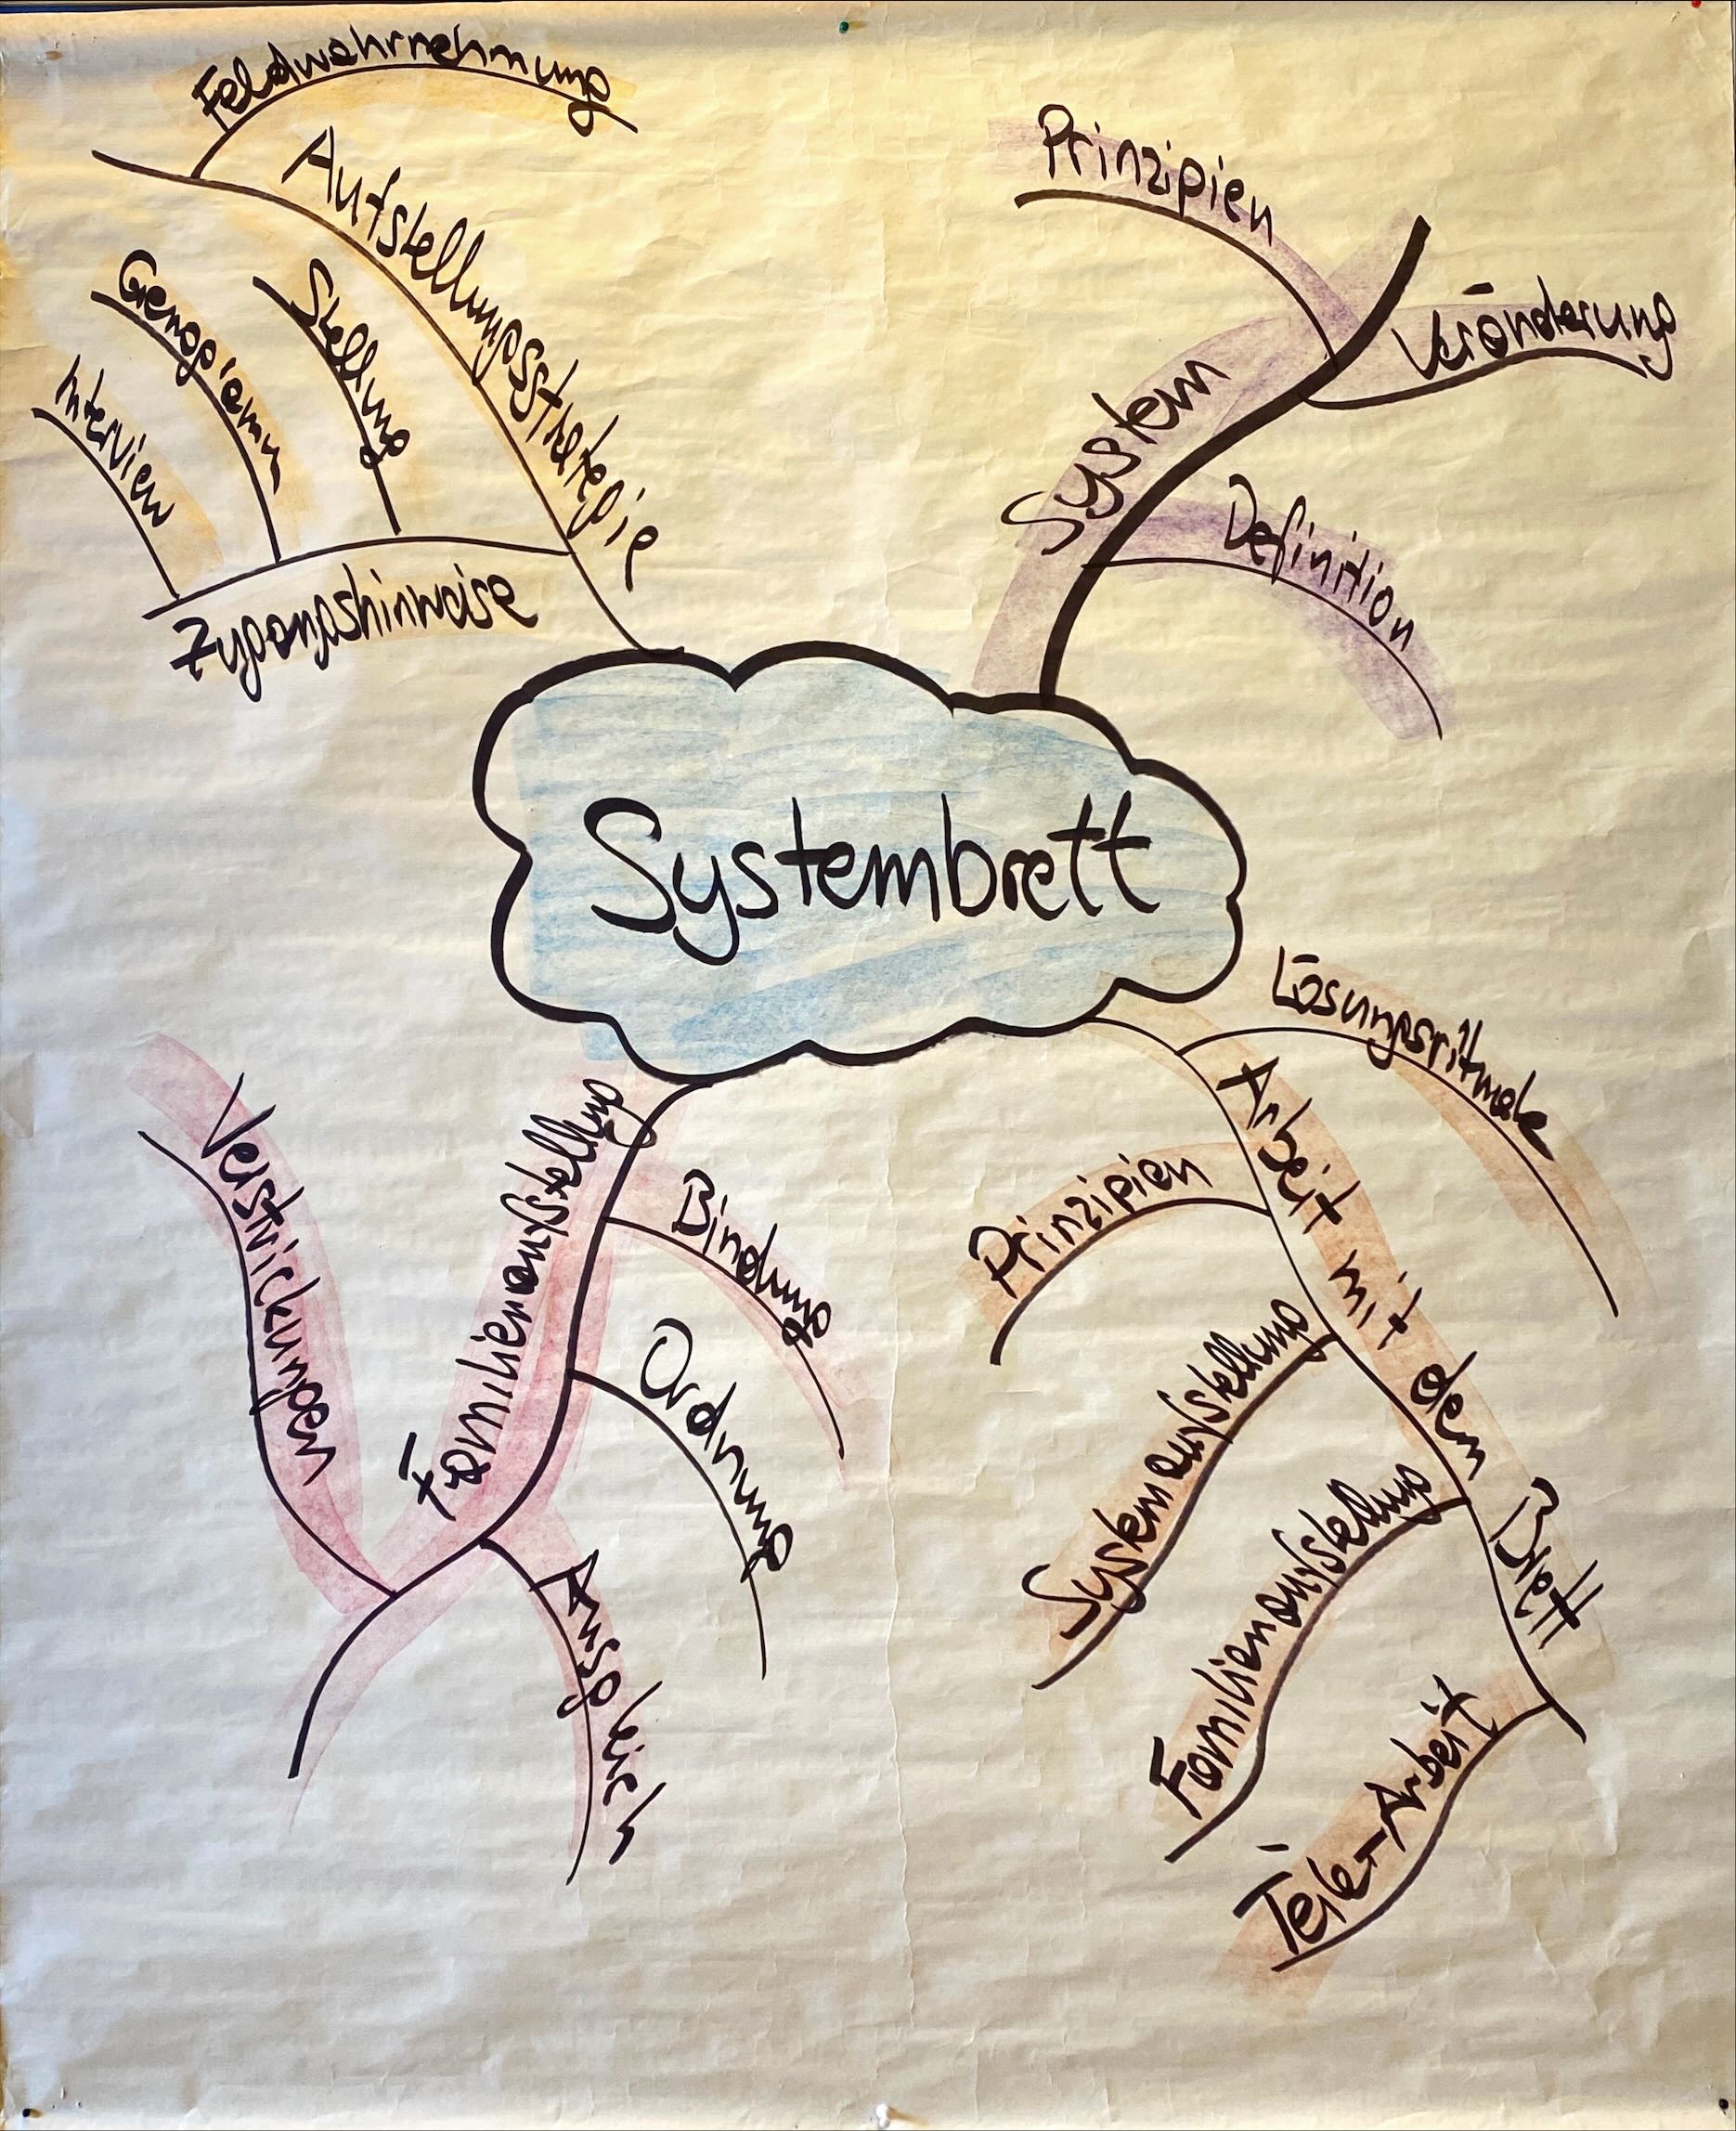 Systembrett
System
Prinzipien
Veränderung
Definition
Arbeit mit dem Brett
Lösungsrituale
Prinzipien
Systemaufstellung
Familienaufstellung
Teile-Arbeit
Familienaufstellung
Bindung
Ordnung
Ausgleich
Verstrickungen
Aufstellungsstrategie
Zugangshinweise
Interview
Genogramm
Stellung
Feldwahrnehmung